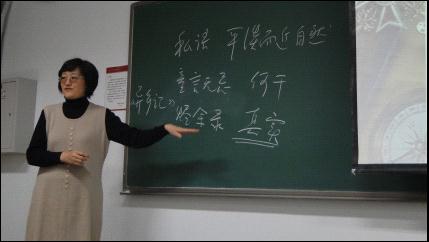 私语 平淡而近自然
童言无忌 何干
异乡记》 烬余录 真实